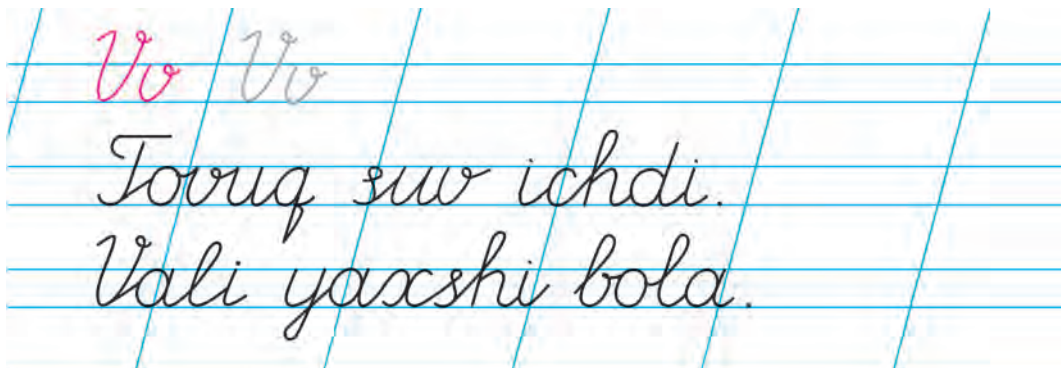 Vv Vv
Tovuq suv ichdi.
Vali yaxshi bola.